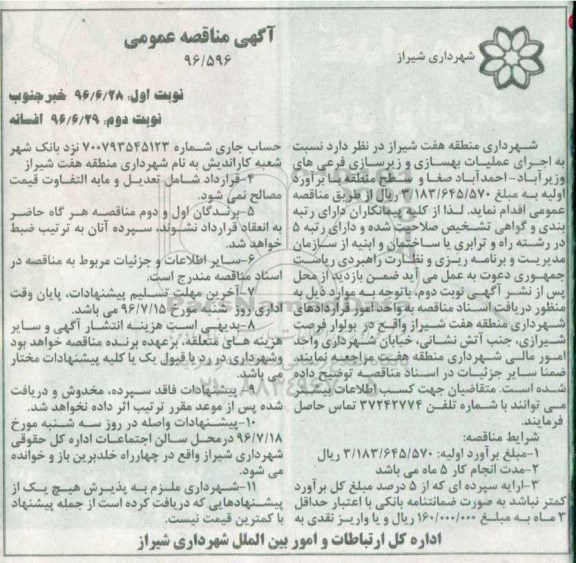 شهرداری شیراز
آگهی مناقصه عمومی
۹۶/۵۹۶
نوبت اول: ۹۶/۶/۲۸ خبرجنوب
نوبت دوم: ۹۶/۶/۲۹ افسانه
شهرداری منطقه هفت شیراز در نظر دارد نسبت
به اجرای عملیات بهسازی و زیرسازی فرعی های
وزیرآباد- احمدآباد صغا و سطح منطقه با برآورد
اولیه به مبلغ ۳/۱۸۳/۶۴۵/۵۷۰ ریال از طریق مناقصه
عمومی اقدام نماید. لذا از کلیه پیمانکاران دارای رتبه
بندی و گواهی تشخیص صلاحیت شده و دارای رتبه ۵
در رشته راه و ترابری یا ساختمان و ابنیه از سازمان
مدیریت و برنامه ریزی و نظارت راهبردی ریاست
جمهوری دعوت به عمل می آید ضمن بازدید از محل
پس از نشر آگهی نوبت دوم، باتوجه به موارد ذیل به
منظور دریافت اسناد مناقصه به واحد امور قراردادهای
شهرداری منطقه هفت شیراز واقع در بولوار فرصت
شیرازی، جنب آتش نشانی، خیابان شهرداری واحد
امور مالی شهرداری منطقه هفت مراجعه نمایند.
ضمنا سایر جزئیات در اسناد مناقصه توضیح داده
شده است. متقاضیان جهت کسب اطلاعات بیشتر
می توانند با شماره تلفن ۳۷۲۴۲۷۷۴ تماس حاصل
فرمایند.
شرایط مناقصه:
۱-مبلغ برآورد اولیه: ۳/۱۸۳/۶۴۵/۵۷۰ ریال
۲-مدت انجام کار ۵ ماه می باشد
۳-ارایه سپرده ای که از ۵ درصد مبلغ کل برآورد
کمتر نباشد به صورت ضمانتنامه بانکی با اعتبار حداقل
۳ ماه به مبلغ ۱۶۰/۰۰۰/۰۰۰ ریال و یا واریز نقدی به
حساب جاری شماره ۷۰۰۷۹۳۵۴۵۱۲۳ نزد بانک شهر
شعبه کاراندیش به نام شهرداری منطقه هفت شیراز
۴-قرارداد شامل تعدیل و مابه التفاوت قیمت
مصالح نمی شود.
۵-برندگان اول و دوم مناقصه هر گاه حاضر
به انعقاد قرارداد نشوند، سپرده آنان به ترتیب ضبط
خواهد شد.
۶-سایر اطلاعات و جزئیات مربوط به مناقصه در
اسناد مناقصه مندرج است.
۷-آخرین مهلت تسلیم پیشنهادات، پایان وقت
اداری روز شنبه مورخ ۹۶/۷/۱۵ می باشد.
۸-بدیهی است هزینه انتشار آگهی و سایر
هزینه های متعلقه، برعهده برنده مناقصه خواهد بود
وشهرداری در رد یا قبول یک یا کلیه پیشنهادات مختار
می باشد.
۹-پیشنهادات فاقد سپرده، مخدوش و دریافت
شده پس از موعد مقرر ترتیب اثر داده نخواهد شد.
۱۰-پیشنهادات واصله در روز سه شنبه مورخ
۹۶/۷/۱۸ درمحل سالن اجتماعات اداره کل حقوقی
شهرداری شیراز واقع در چهارراه خلدبرین باز و خوانده
می شود.
۱۱-شهرداری ملزم به پذیرش هیچ یک از
پیشنهادهایی که دریافت کرده است از جمله پیشنهاد
با کمترین قیمت نیست.
اداره کل ارتباطات و امور بین الملل شهرداری شیراز